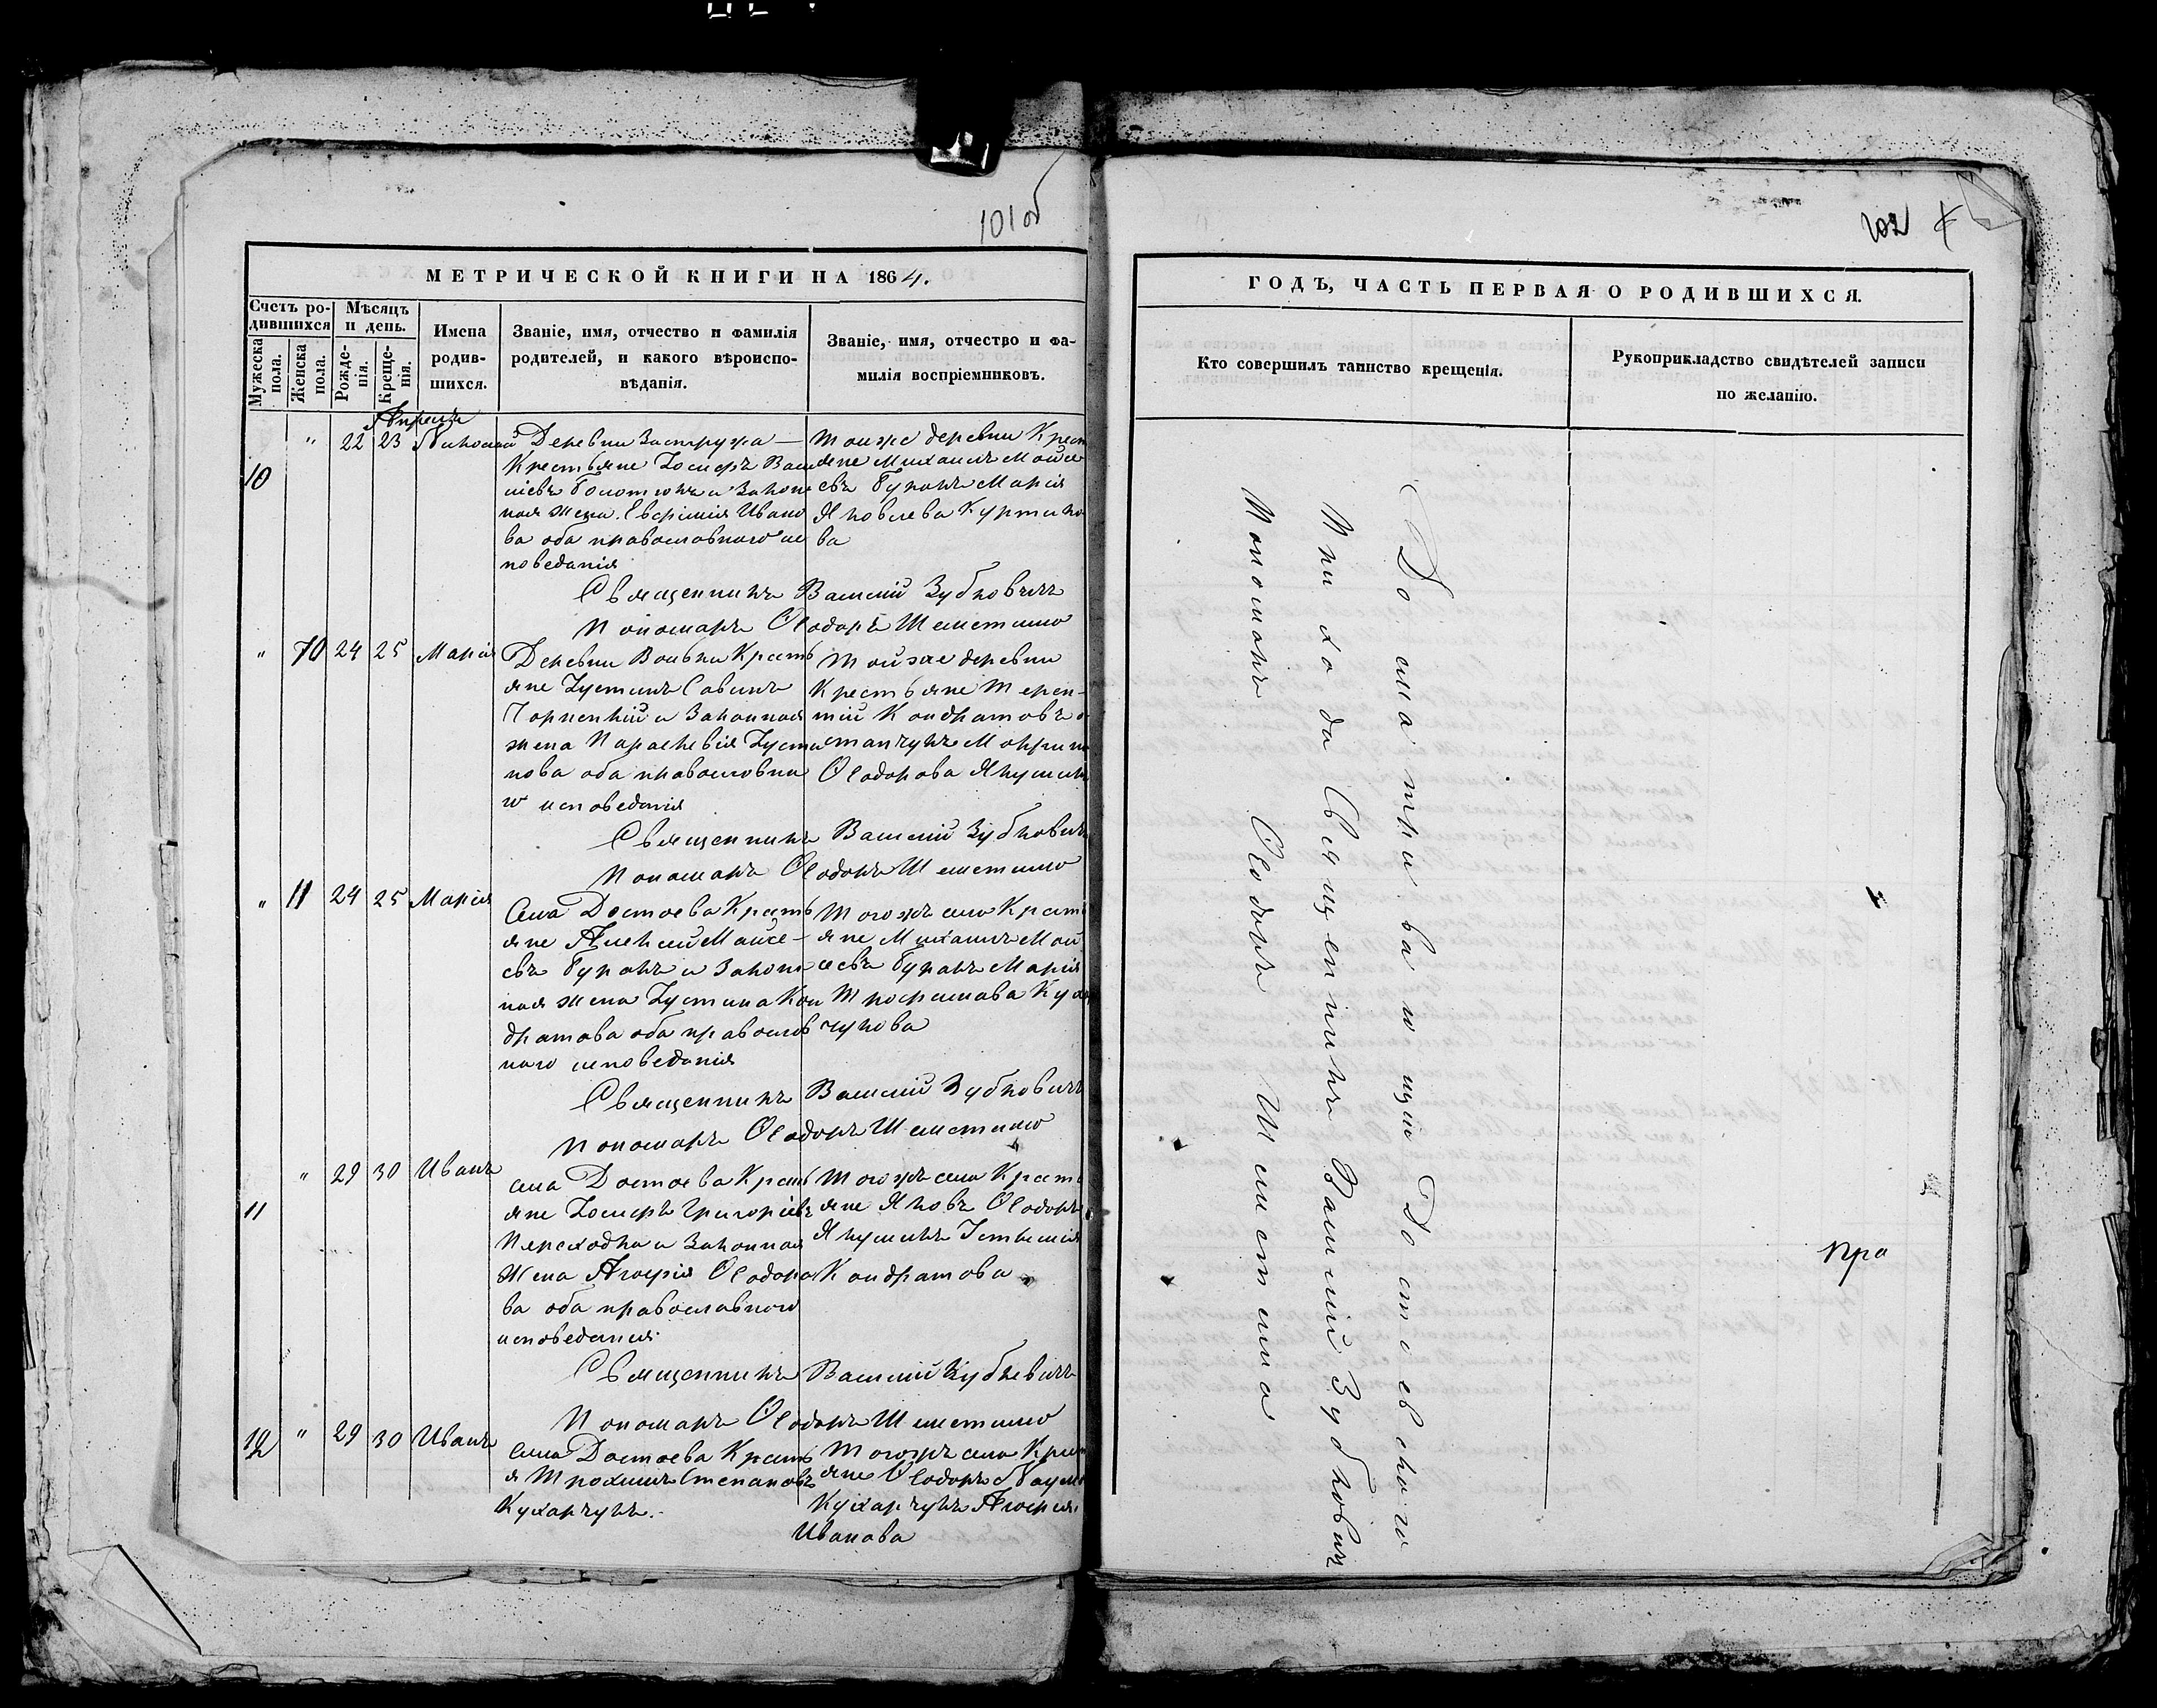 101 об
МЕТРИЧЕСКОЙ КНИГИ НА 1864.
Счетъ ро-
дившихся
Мужеска
пола.
Женска
пола.
Мѣсяцъ
и день.
Рожде-
нія.
Креще-
нія.
Имена
родив-
шихся.
Званіе, имя, отчество и фамилія
родителей, и какого вѣроиспо-
вѣданія.
Званіе, имя, отчество и фа-
милія воспріемниковъ.
Апрель
10 " 22 23 Николай
Деревни Застружа —
Крестьяне Іосифъ Васи
ліевъ и Закон
ная жена Евфимія Ивано
ва оба православнаго ис
поведанія
Тойже деревни Крест
яне Михаилъ Мойсе
евъ Буракъ Марія
Яковлева
ва
Священникъ Василій Зубковичъ
Пономаръ Ѳеодоръ Шеметилло
" 10 24 25 Марія
Деревни Вольки Кресть
яне Іустинъ Савинъ
и Законная
жена Параскевія Іусти
нова оба православна
го исповеданія
Тойже деревни
Крестьяне Терен-
тій Кондратовъ
Ѳеодорова
Священникъ Василій Зубковичъ
Пономаръ Ѳеодоръ Шеметилло
" 11 24 25 Марія
Села Достоева Кресть
яне Алексей Мойсе-
евъ Буракъ и Закон
ная жена Іустина Кон
дратова оба православ
наго исповеданія
Тогожъ села Кресть
яне Михаилъ Мой
сеевъ Буракъ Марія
Трофимова Кухар
чукова
Священникъ Василій Зубковичъ
Пономаръ Ѳеодоръ Шеметилло
11 " 29 30 Иванъ
села Достоева Кресть
яне Іосифъ Григоріевъ
Переходка и Законная
Жена Агафія Ѳеодоро
ва оба православнаго
исповеданія
Тогожъ села Кресть
яне Яковъ Ѳеодоръ
Кондратова
Священникъ Василій Зубковичъ
Пономаръ Ѳеодоръ Шеметилло
12 " 29 30 Иванъ
Села Достоева Кресть
я Трохимъ Степановъ
Кухарчукъ.
Тогожъ села Крест
яне Ѳеодоръ Наумъ
Кухарчукъ Агафія
Иванова
102
ГОДЪ, ЧАСТЬ ПЕРВАЯ О РОДИВШИХСЯ.
Кто совершилъ таинство крещенія.
Рукоприкладство свидѣтелей записи
по желанію.
До сматривающи Достоевскаго
Прихода Священникъ Василій Зубковичъ
Пономаръ Ѳеодоръ Шеметилло
пра